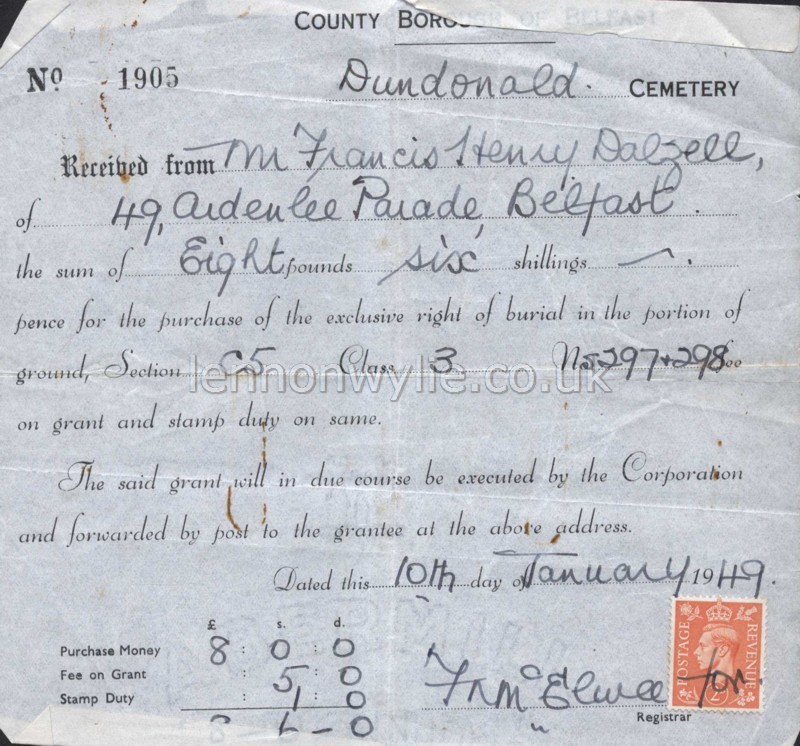 COUNTY BOROUGH OF BELFAST
No. 1905 Dundonald. CEMETERY
Received from Mr Francis Henry Dalzell,
of 49, Ardenlee Parade, Belfast.
the sum of Eight pounds six shillings —.
pence for the purchase of the exclusive right of burial in the portion of
ground, Section C5 Class 3 Nos 297 + 298
lennonwylie.co.uk
on grant and stamp duty on same.
The said grant will in due course be executed by the Corporation
and forwarded by post to the grantee at the above address.
Dated this 10th day of January 1949.
£ s. d.
Purchase Money 8 : 0 : 0
Fee on Grant : 5 : 0
Stamp Duty : 1 : 0
8 - 6 - 0
McElwee for.
Registrar
POSTAGE REVENUE